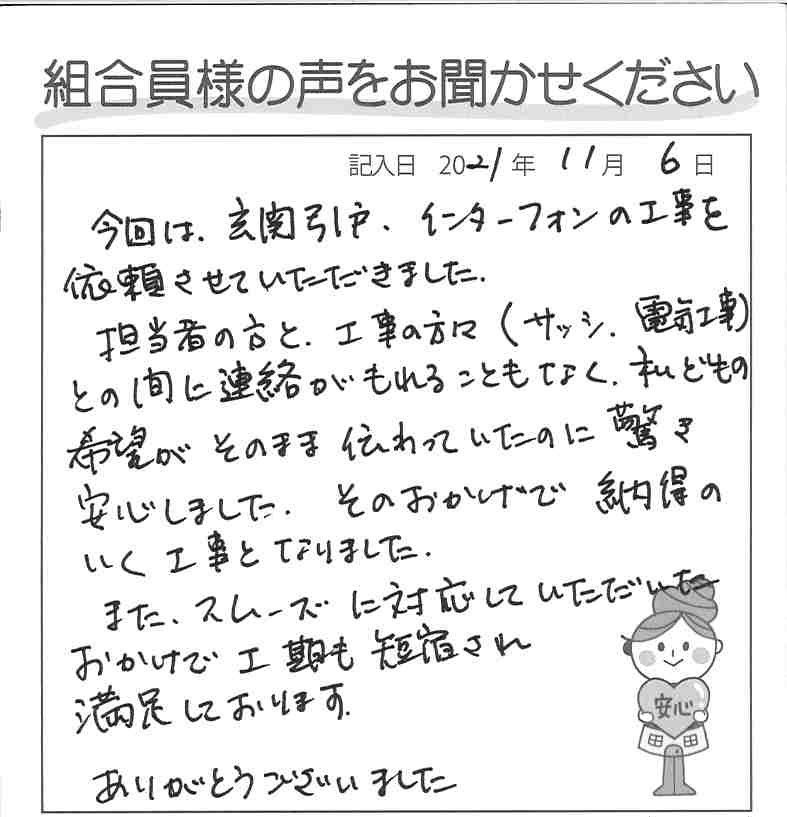 組合員様の声をお聞かせください
記入日 2021年 11月 6日
今回は、玄関引戸、インターフォンの工事を
依頼させていただきました.
担当者の方と、工事の方々(サッシ、電気工事)
との間に連絡がもれることもなく、私どもの
希望がそのまま伝わっていたのに驚き
安心しました. そのおかげで納得の
いく工事となりました.
また、スムーズに対応していただいた
おかげで工期も短宿され
満足しております.
ありがとうございました
安心